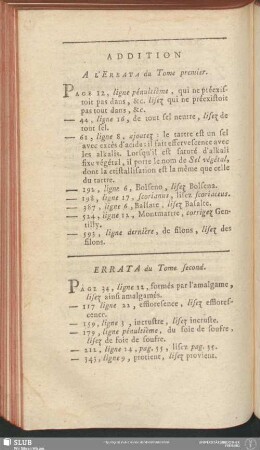 ADDITION
A L'ERRATA du Tome premier.
PAGE 12, ligne pénultième, qui ne préexis-
toit pas dans, &c. lisez qui ne préexistoit
pas tout dans, &c.
— 42, ligne 16, de tout sel neutre, lisez de
tout sel.
— 61, ligne 8, ajoutez : le tartre est un sel
avec excès d'acide : il fait effervescence avec
les alkalis. Lorsqu'il est saturé d'alkali
fixe végétal, il porte le nom de Sel végétal,
dont la cristallisation est la même que celle
du tartre.
— 192, ligne 6, Bolseno, lisez Bolsena.
— 198, ligne 17, scorianus, lisez scoriaceus.
— 387, ligne 6, Ballate, lisez Basalte.
— 524, ligne 12, Montmartre, corrigez Gen-
tilly.
— 593, ligne dernière, de filons, lisez des
filons.
ERRATA du Tome second.
PAGE 34, ligne 12, formés par l'amalgame,
lisez ainsi amalgamés.
— 117 ligne 22, effloresence, lisez efflores-
cence.
— 159, ligne 3, incrustre, lisez incruste.
— 179, ligne pénultième, du foie de soufre,
lisez de foie de soufre.
— 212, ligne 14, pag. 55, lisez pag. 35.
— 343, ligne 9, protient, lisez provient.
SLUB